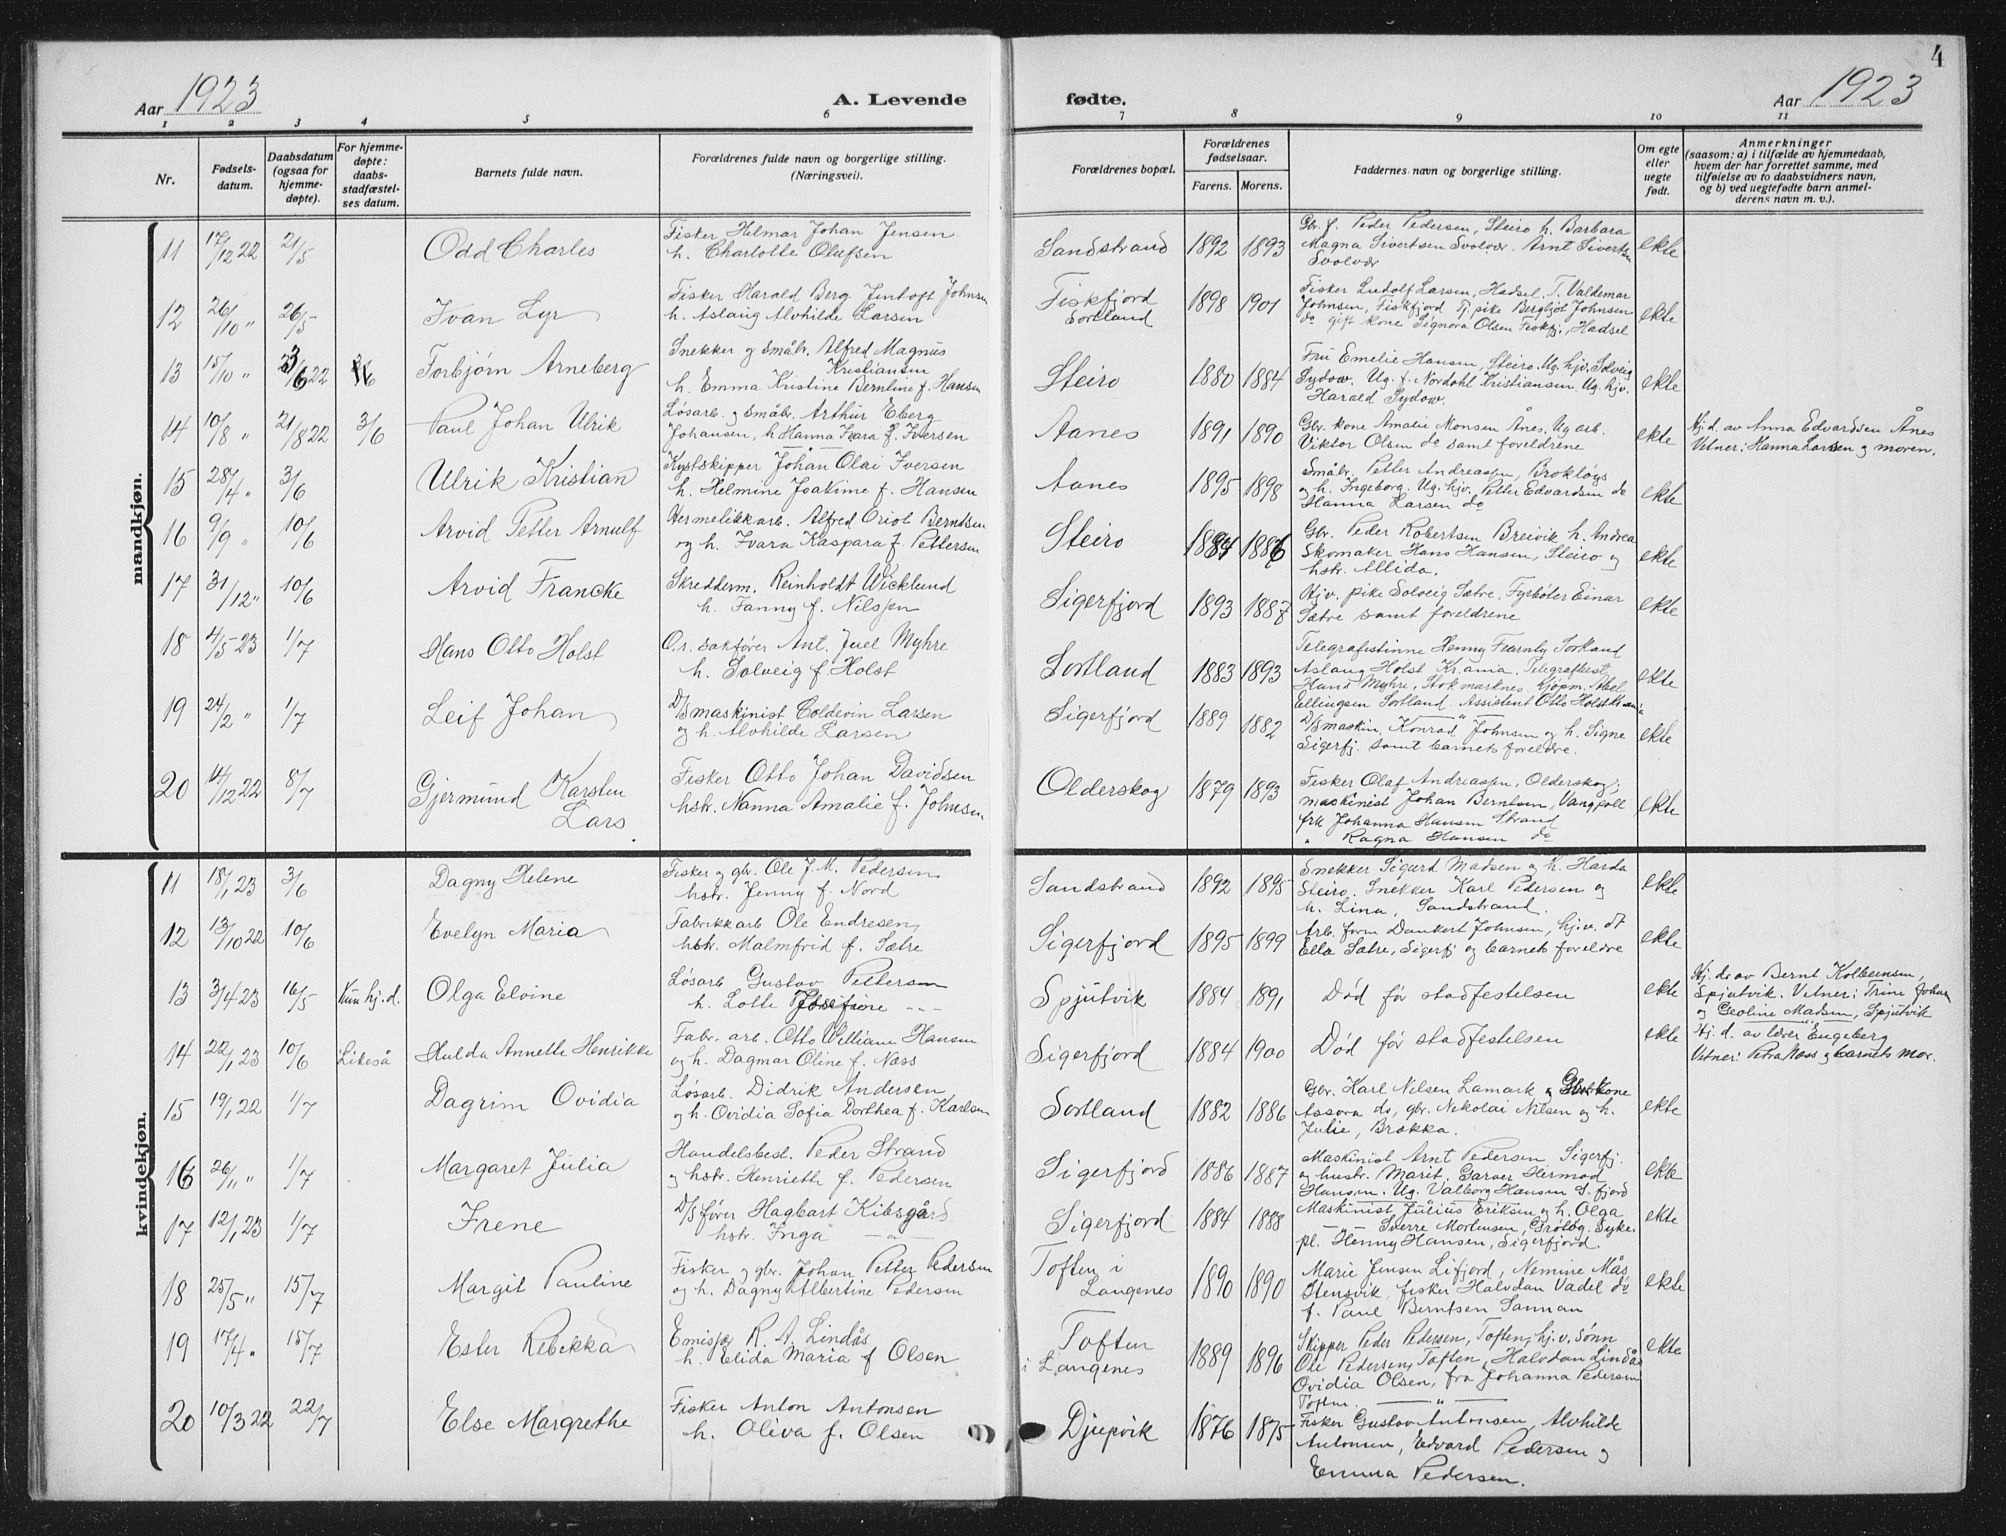 4
Aar 1923
A. Levende
fødte.
Aar 1923
1 2 3 4 5 6 7 8 9 10 11
Nr.
Fødsels-
datum.
Daabsdatum
(ogsaa for
hjemme-
døpte).
For hjemme-
døpte:
daabs-
stadfæstel-
ses datum.
Barnets fulde navn.
Forældrenes fulde navn og borgerlige stilling.
(Næringsvei).
Forældrenes bopæl.
Forældrenes
fødselsaar.
Farens. Morens.
Faddernes navn og borgerlige stilling.
Om egte
eller
uegte
født.
Anmerkninger
(saasom: a) i tilfælde av hjemmedaab,
hvem der har forrettet samme, med
tilføielse av to daabsvidners navn,
og b) ved uegtefødte barn anmel-
derens navn m. v.).
mandkjøn.
11 17/12 22 21/5 Odd Charles
Fisker Hilmar Johan Jensen
h. Charlotte Olufsen
Sandstrand 1892 1893
Gbr. f. Peder Pedersen, Steiro h. Barbara
Magna Sivertsen Svolvær. Arnt Sivertsen
Svolvær
ekte
12 26/10 " 26/5 Ivan Lyr
Fisker Harald Berg Jentoft Johnsen
h. Aslaug Alvhilde Larsen
Fiskfjord
Sortland
1898 1901
Fisker Ludolf Larsen, Hadsel. T. Valdemar
Johnsen, Fiskfjord Tj. pike Bergljot Johnsen
do gift kone Signora Olsen Fiskfj., Hadsel
ekte
13 15/10 " 3/6 22 Torbjørn Arneberg
Snekker og småbr. Alfred Magnus
Kristiansen
h. Emma Kristine Berntine f. Hansen
Steiro 1880 1884
Fru Emelie Hansen, Steiro. Ug. hjv. Solveig
Sydow. Ug. f. Nordahl Kristiansen. Ug. hjv.
Harald Sydow.
ekte
14 10/8 " 21/8 22 3/6 Paul Johan Ulrik
Løsarb. og småbr. Arthur Eberg
Johansen, h Hanna Kara f. Iversen
Aanes 1891 1890
Gbr. kone Amalie Monsen Ånes. Ug arb.
Viktor Olsen do samt foreldrene
ekte
Hj. d. av Anna Edvardsen Ånes
Vitner: Hanna Larsen og moren.
15 28/4 " 3/6 Ulrik Kristian
Kystskipper Johan Olai Iversen
h. Helmine Joakime f. Hansen
Aanes 1895 1898
Småbr. Petter Andreassen, Brokløys
og h. Ingeborg. Ug. hjv. Petter Edvardsen do
Hanna Larsen do
ekte
16 9/9 " 10/6 Arvid Petter Arnulf
Hermetikkarb. Alfred Oriol Berntsen
og h. Ivara Kaspara f. Pettersen
Steiro 1884 1886
Gbr. Peder Robertsen Breivik h. Andrea
Skomaker Hans Hansen, Steiro og
hstr. Allida.
ekte
17 31/12 " 10/6 Arvid Francke
Skredderm. Reinholdt Wicklund
h. Fanny f. Nilssen
Sigerfjord 1893 1887
Hjv. pike Solveig Sætre, Fyrbøter Einar
Sætre samt foreldrene
ekte
18 4/5 23 1/7 Hans Otto Holst
O.r. sakfører Ant. Juel Myhre
h. Solveig f. Holst
Sortland 1883 1893
Telegrafistinne Henny Fearnly Sortland
Aslaug Holst Kr.ania. Telegrafbest.
Hans Myhre, Stokmarknes. Kjøpm. Abel
Ellingsen Sortland. Assistent Otto Holst Kr.ania
ekte
19 24/2 " 1/7 Leif Johan
D/S maskinist Coldevin Larsen
og h. Alvhilde Larsen
Sigerfjord 1889 1882
D/S maskin. Konrad Johnsen og h. Signe
Sigerfj. samt barnets foreldre.
ekte
20 14/12 22 8/7 Gjermund Karsten
Lars
Fisker Otto Johan Davidsen
hstr. Nanna Amalie f. Johnsen
Olderskog 1879 1893
Fisker Olaf Andreassen, Olderskog;
maskinist Johan Berntsen, Vangpoll
frk Johanna Hansen Strand
" Ragna Hansen do
ekte
kvindekjøn.
11 18/1 23 3/6 Dagny Helene
Fisker og gbr. Ole J. M. Pedersen
hstr. Jenny f. Nord
Sandstrand 1892 1895
Snekker Sigurd Madsen og h. Harda
Steiro. Snekker Karl Pedersen og
h. Lina, Sandstrand.
ekte
12 13/10 22 10/6 Evelyn Maria
Fabrikkarb Ole Endresen,
hstr. Malmfrid f. Sætre
Sigerfjord 1895 1899
Arb. form Dankert Johnsen, hj.v. dt
Ella Sætre, Sigerfj og barnets foreldre
ekte
13 3/4 23 16/5 Kun hj. d. Olga Elvine
Løsarb Gustav Pettersen
h. Lotte Josefine -"-
Spjutvik 1884 1891
Død før stadfestelsen
ekte
Hj. d. av Bernt Kolbeinsen,
Spjutvik. Vitner: Trine Johan
og Geoline Madsen, Spjutvik
14 22/1 23 10/6 Likeså Hulda Annette Henrikke
Fabr. arb. Otto William Hansen
og h. Dagmar Oline f. Næss
Sigerfjord 1884 1900
Død før stadfestelsen
ekte
Hj. d. av lærer Engeberg
Vitner: Petra Næss og barnets mor.
15 19/1 22 1/7 Dagrim Ovidia
Løsarb. Didrik Andersen
og h. Ovidia Sofia Dorthea f. Karlsen
Sortland 1882 1886
Gbr. Karl Nilsen Lamark kone
Assora do, gbr. Nikolai Nilsen og h.
Julie, Brokka.
ekte
16 26/11 " 1/7 Margaret Julia
Handelsbest. Peder Strand
og hstr. Henriette f. Pedersen
Sigerfjord 1886 1887
Maskinist Arnt Pedersen Sigerfj.
og hustr. Marit. Garver Hermod
Hansen. Ug. Valborg Hansen S. fjord
ekte
17 12/1 23 1/7 Irene
D/S fører Hagbart Kibsgård
hstr. Inga -"-
Sigerfjord 1884 1888
Maskinist Julius Eriksen og h. Olga
-"- Sverre Mortensen, Syke-
pl. Henny Hansen, Sigerfjord.
ekte
18 25/5 " 15/7 Margit Pauline
Fisker og gbr. Johan Petter Pedersen
og h. Dagny Albertine Pedersen
Toften i
Langenes
1890 1890
Marie Jensen Lifjord, Nemine Mås
Stensvik, fisker Halvdan Vadel do
f. Paul Berntsen Sannan
ekte
19 17/4 " 15/7 Ester Rebekka
Emissær R. A. Lindås
h. Elida Maria f Olsen
Toften
i Langenes
1889 1896
Skipper Peder Pedersen, Toften, hj. v. sønn
Ole Pedersen, Toften, Halvdan Lindås
Ovidia Olsen, fra Johanna Pedersen
Toften. -"-
ekte
20 10/3 22 22/7 Else Margrethe
Fisker Anton Antonsen
h. Oliva f. Olsen
Djupvik 1876 1875
Fisker Gustav Antonsen, Alvhilde
Antonsen, Edvard Pedersen og
Emma Pedersen.